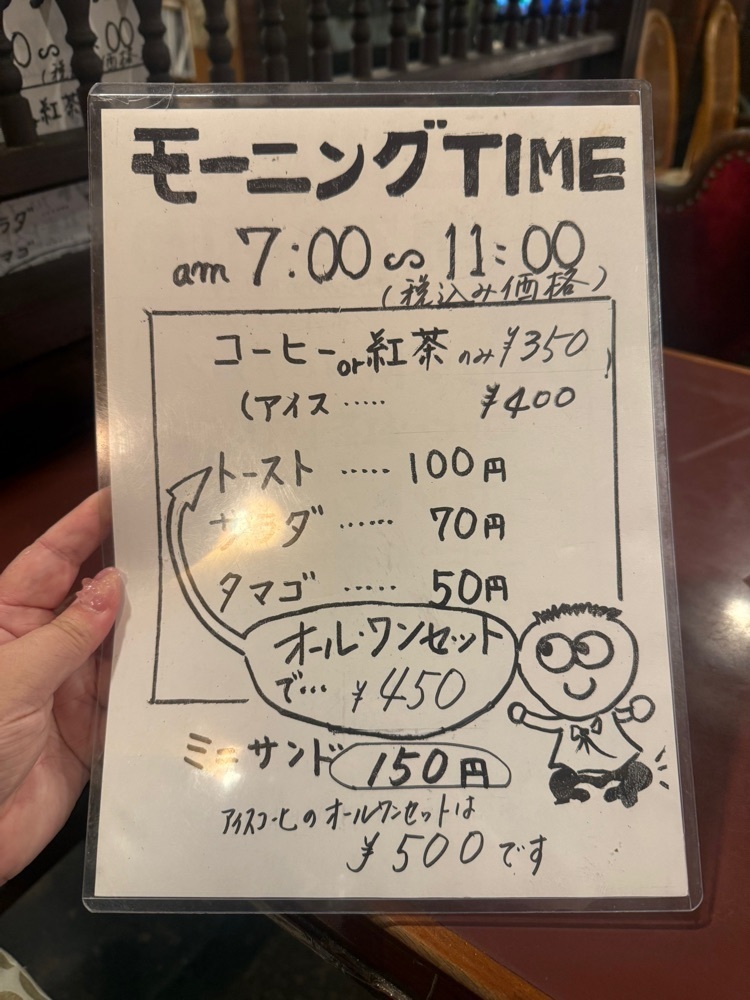 モーニングTIME
am 7:00 〜 11:00
(税込み価格)
コーヒー or 紅茶 のみ ¥350
(アイス ····· ¥400
トースト ····· 100円
サラダ ······ 70円
タマゴ ····· 50円
オール・ワンセット
で… ¥450
ミニサンド 150円
アイスコーヒのオールワンセットは
¥500です